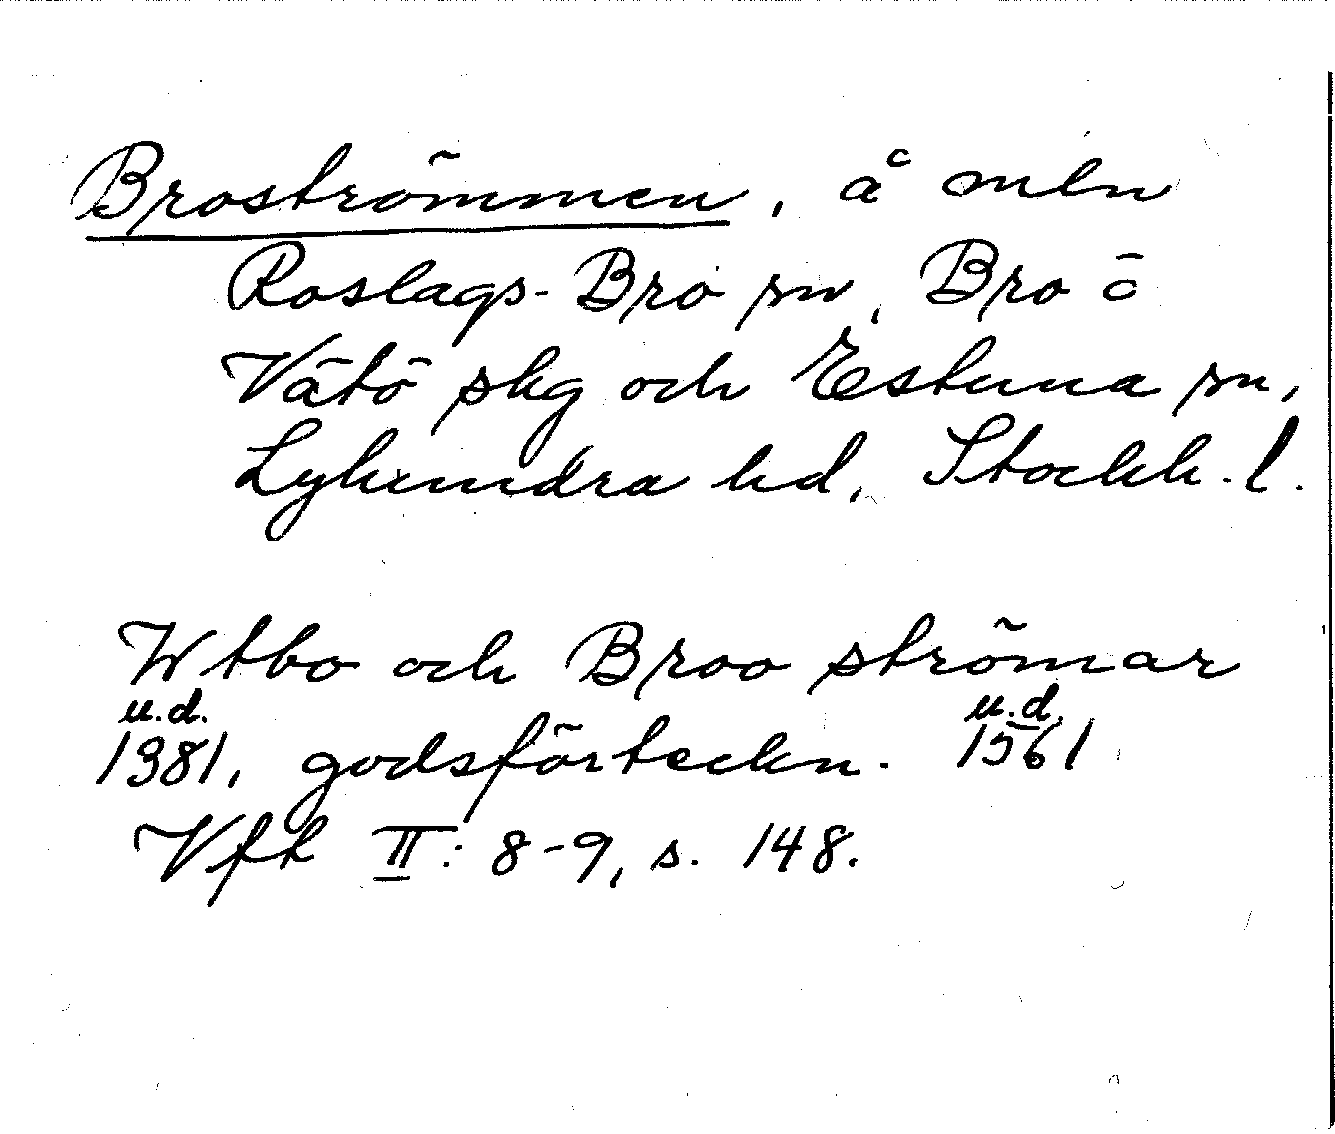 Broströmmen, å mln
Roslags-Bro sn, Bro o
Vätö skg och Estuna sn,
Lyhundra hd, Stockh. l.
Wtbo och Broo strömar
u.d. u.d.
1381, godsförteckn. 1561
Vfk II: 8-9, s. 148.